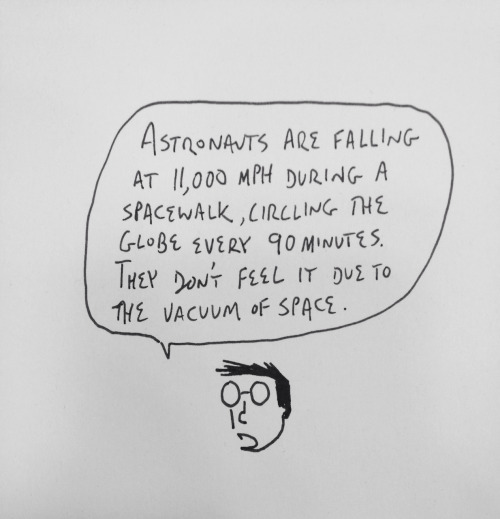 ASTRONAUTS ARE FALLING
AT 11,000 MPH DURING A
SPACEWALK, CIRCLING THE
GLOBE EVERY 90 MINUTES.
THEY DON'T FEEL IT DUE TO
THE VACUUM OF SPACE.